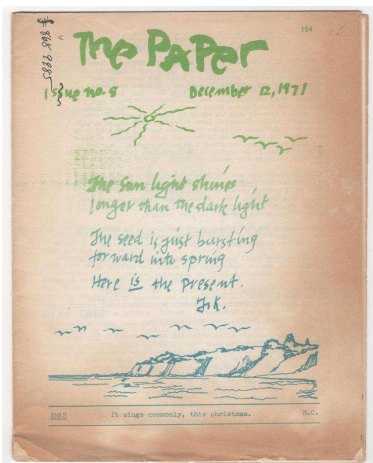 154
The PAPer
issue no. 8 December 12, 1971
The Sun light shines
longer than the dark light
The seed is just bursting
forward into spring
Here is the present.
XMAS It sings commonly, this christmas. B.C.